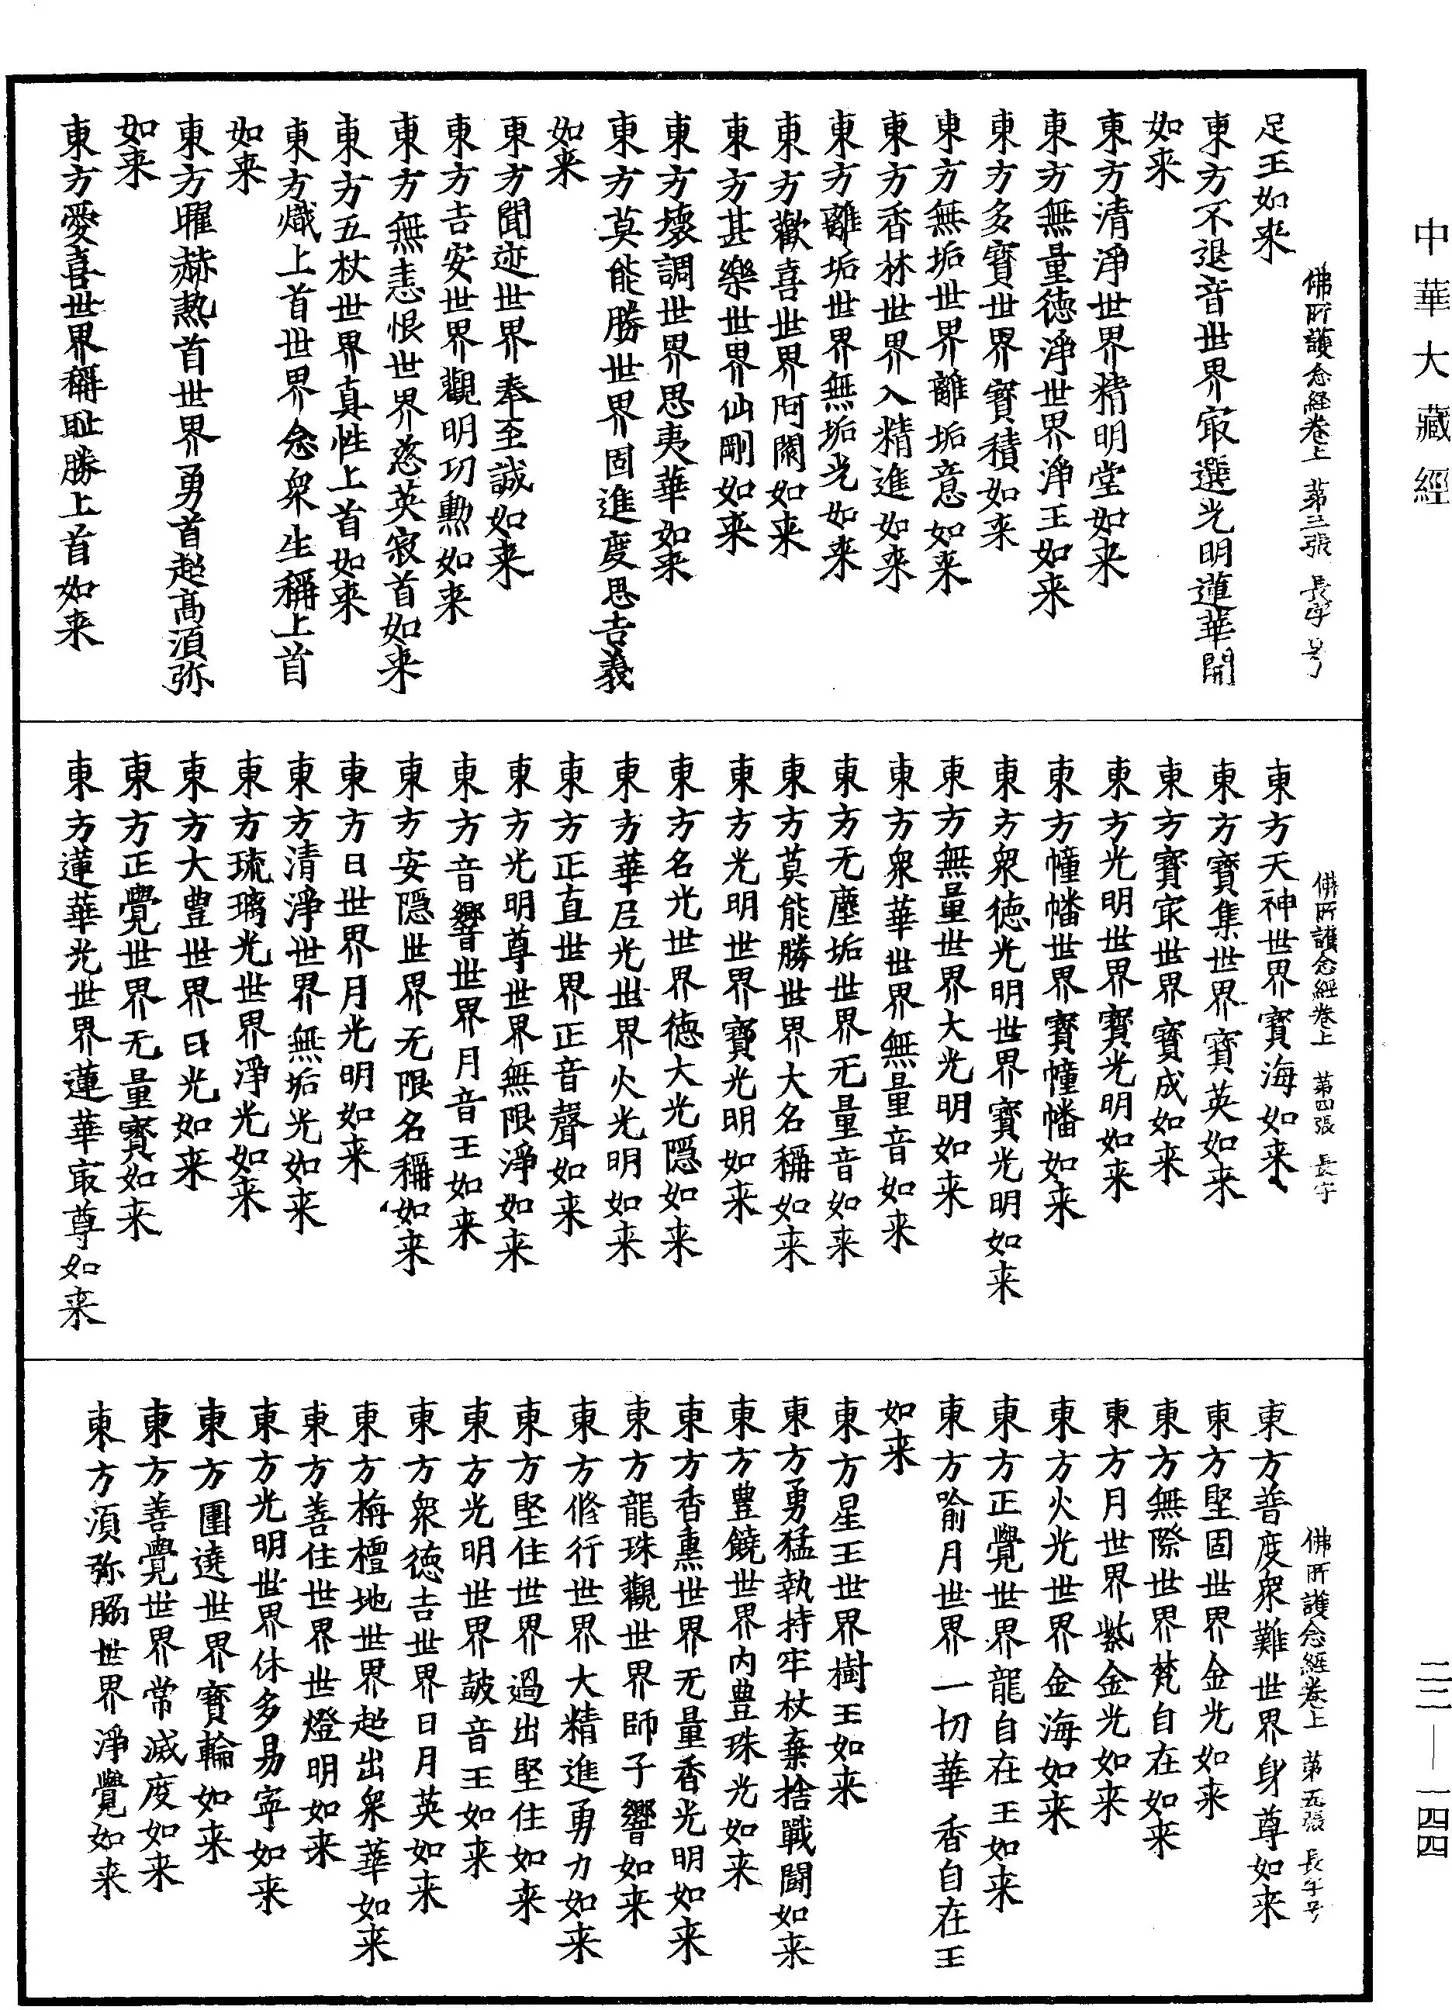 中華大藏經
足王如来
佛所護念經卷上 第三張 長字号
東方不退音世界㝡選光明蓮華開
如来
東方清淨世界精明堂如来
東方無量德淨世界淨王如来
東方多寶世界寶積如来
東方無垢世界離垢意如来
東方香林世界入精進如来
東方離垢世界無垢光如来
東方歡喜世界阿閦如来
東方甚樂世界仙剛如来
東方壞調世界思夷華如来
東方莫能勝世界固進度思吉義
如来
東方聞迹世界奉至誠如来
東方吉安世界觀明功勲如来
東方無恚恨世界慈英寂首如来
東方五杖世界真性上首如来
東方熾上首世界念衆生稱上首
如来
東方曜赫熱首世界勇首超高湏弥
如来
東方愛喜世界稱耻勝上首如来
佛所護念經卷上 第四張 長字
東方天神世界寶海如来
東方寶集世界寶英如来
東方寶㝡世界寶成如来
東方光明世界寶光明如来
東方幢幡世界寶幢幡如来
東方衆徳光明世界寶光明如来
東方無量世界大光明如来
東方衆華世界無量音如来
東方无塵垢世界无量音如来
東方莫能勝世界大名稱如来
東方光明世界寶光明如来
東方名光世界徳大光隠如来
東方華㞐光世界火光明如来
東方正直世界正音聲如来
東方光明尊世界無限淨如来
東方音響世界月音王如来
東方安隠世界无限名稱如来
東方日世界月光明如来
東方清淨世界無垢光如来
東方琉璃光世界淨光如来
東方大豊世界日光如来
東方正覺世界无量寶如来
東方蓮華光世界蓮華㝡尊如来
佛所護念經卷上 第五張 長字号
東方普度衆難世界身尊如来
東方堅固世界金光如来
東方無際世界梵自在如来
東方月世界紫金光如来
東方火光世界金海如来
東方正覺世界龍自在王如来
東方喻月世界一切華香自在王
如来
東方星王世界樹王如来
東方勇猛執持牢杖棄捨戰鬪如来
東方豊饒世界内豊珠光如来
東方香熏世界无量香光明如来
東方龍珠觀世界師子響如来
東方修行世界大精進勇力如来
東方堅住世界過出堅住如来
東方光明世界皷音王如来
東方衆徳吉世界日月英如来
東方栴檀地世界超出衆華如来
東方善住世界世燈明如来
東方光明世界休多易寧如来
東方圍遶世界寶輪如来
東方善覺世界常滅度如来
東方湏弥脇世界淨覺如来
二二—一四四